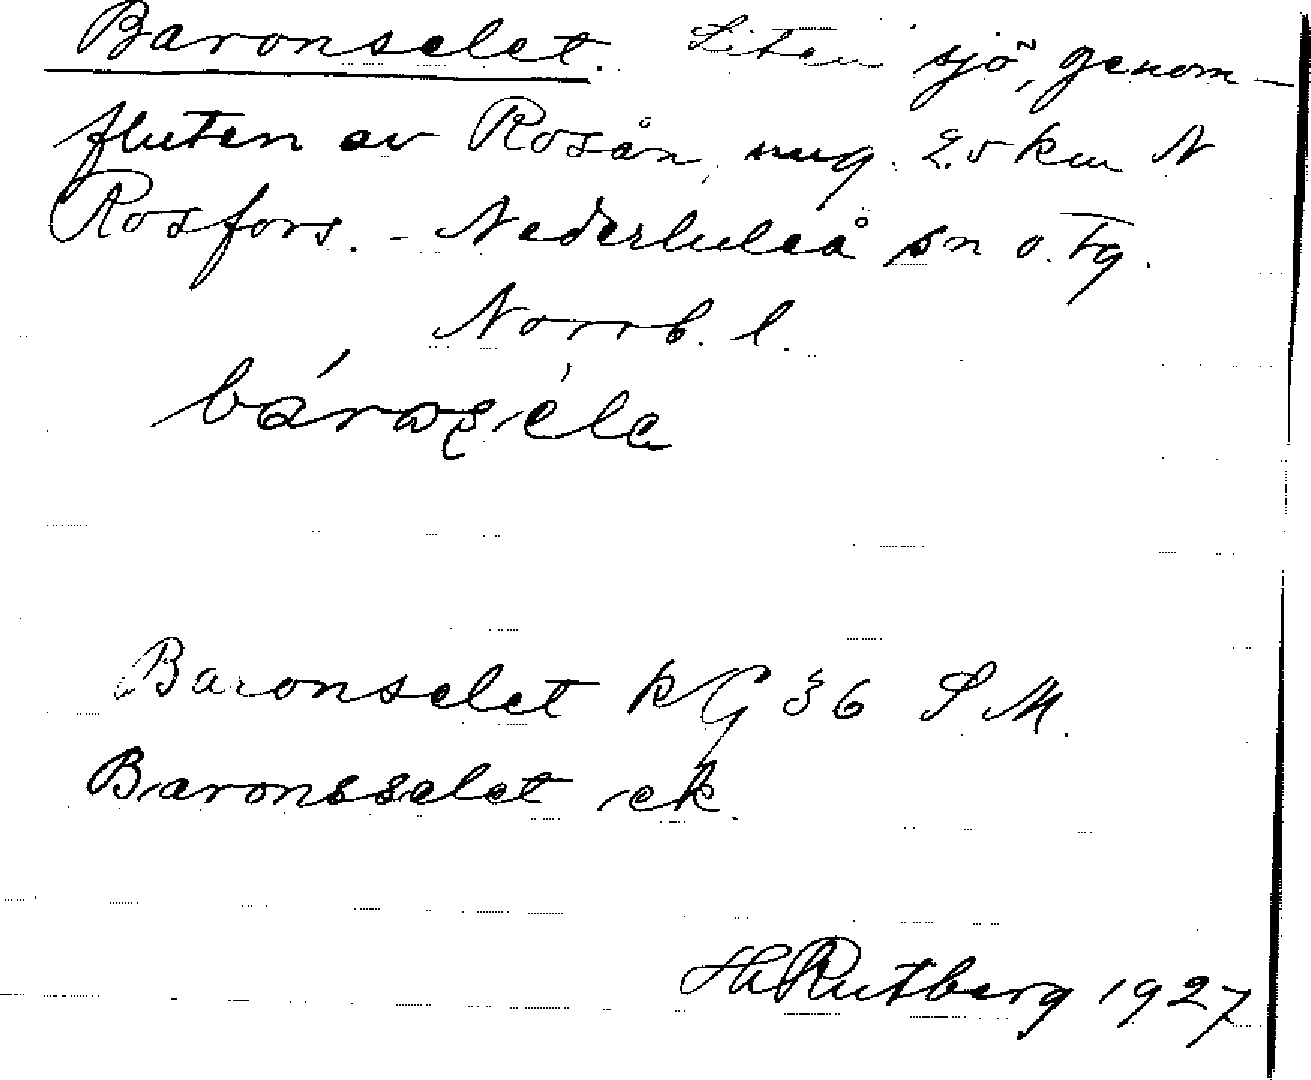 Baronselet. Liten sjö, genom-
fluten av Rosån, ung. 2.5 km N
Rosfors. - Nederluleå sn o. Tg.
Norrb. l.
Baronselet kG 36 S M.
Baronsselet ek.
Hh Rutberg 1927